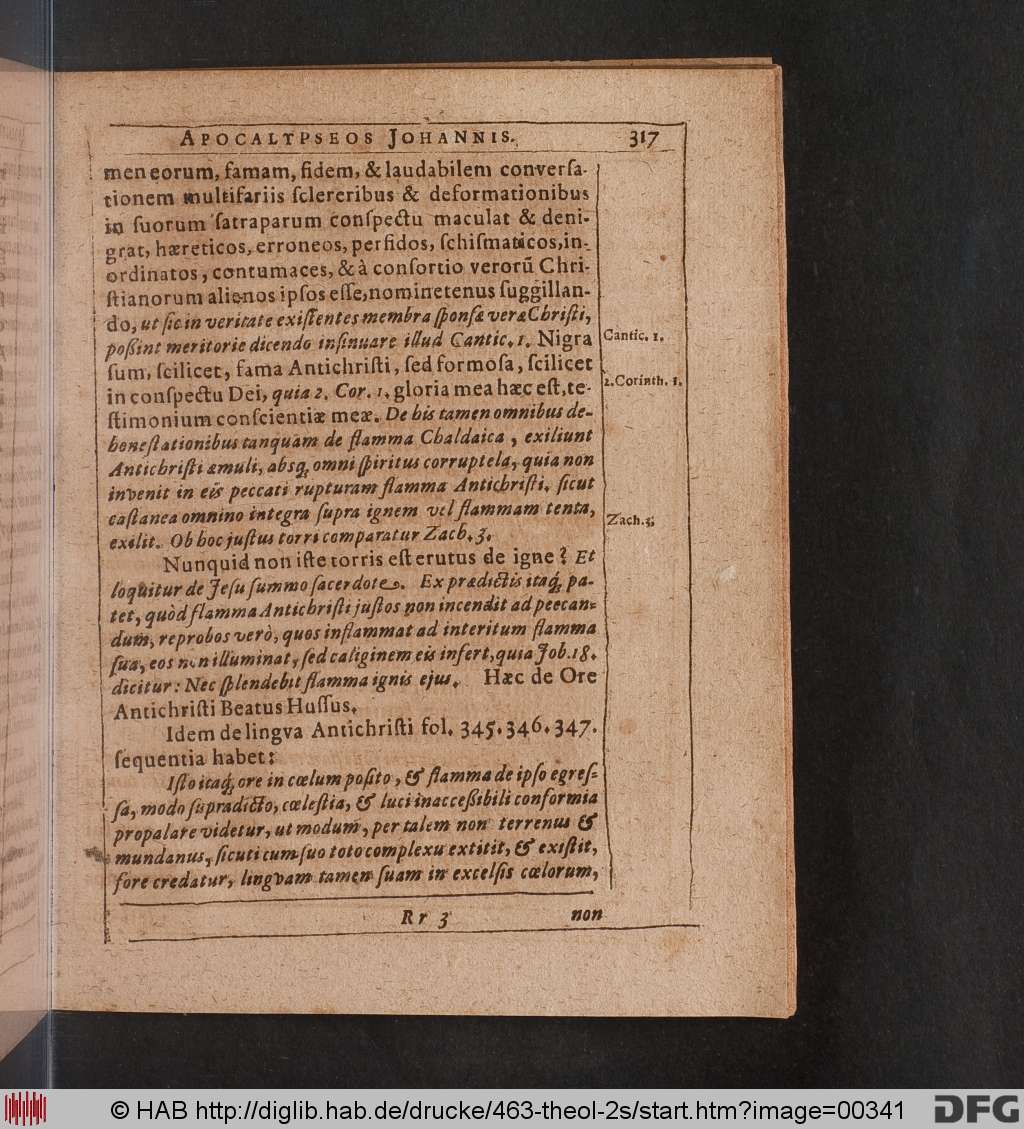 APOCALYPSEOS JOHANNIS. 317
men eorum, famam, fidem, & laudabilem conversa-
tionem multifariis sclereribus & deformationibus
in suorum satraparum conspectu maculat & deni-
grat, hæreticos, erroneos, perfidos, schismaticos, in-
ordinatos, contumaces, & à consortio verorũ Chri-
stianorum alienos ipsos esse, nominetenus suggillan-
do, ut sic in veritate existentes membra sponsæ veræ Christi,
possint meritorie dicendo insinuare illud Cantic. 1. Nigra
Cantic. 1.
sum, scilicet, fama Antichristi, sed formosa, scilicet
in conspectu Dei, quia 2. Cor. 1. gloria mea hæc est, te-
2. Corinth. 1.
stimonium conscientiæ meæ. De his tamen omnibus de-
honestationibus tanquam de flamma Chaldaica, exiliunt
Antichristi æmuli, absq; omni spiritus corruptela, quia non
invenit in eis peccati rupturam flamma Antichristi, sicut
castanea omnino integra supra ignem vel flammam tenta,
exilit. Ob hoc justus torri comparatur Zach. 3.
Zach. 3.
Nunquid non iste torris est erutus de igne? Et
loquitur de Jesu summo sacerdote. Ex prædictis itaq; pa-
tet, quòd flamma Antichristi justos non incendit ad peccan-
dum, reprobos verò, quos inflammat ad interitum flamma
sua, eos non illuminat, sed caliginem eis infert, quia Job. 18.
dicitur: Nec splendebit flamma ignis ejus. Hæc de Ore
Antichristi Beatus Hussus.
Idem de lingva Antichristi fol. 345. 346. 347.
sequentia habet:
Isto itaq; ore in cœlum posito, & flamma de ipso egres-
sa, modo supradicto, cœlestia, & luci inaccessibili conformia
propalare videtur, ut modum, per talem non terrenus &
mundanus, sicuti cum suo toto complexu extitit, & existit,
fore credatur, lingvam tamen suam in excelsis cœlorum,
Rr 3 non
© HAB http://diglib.hab.de/drucke/463-theol-2s/start.htm?image=00341
DFG